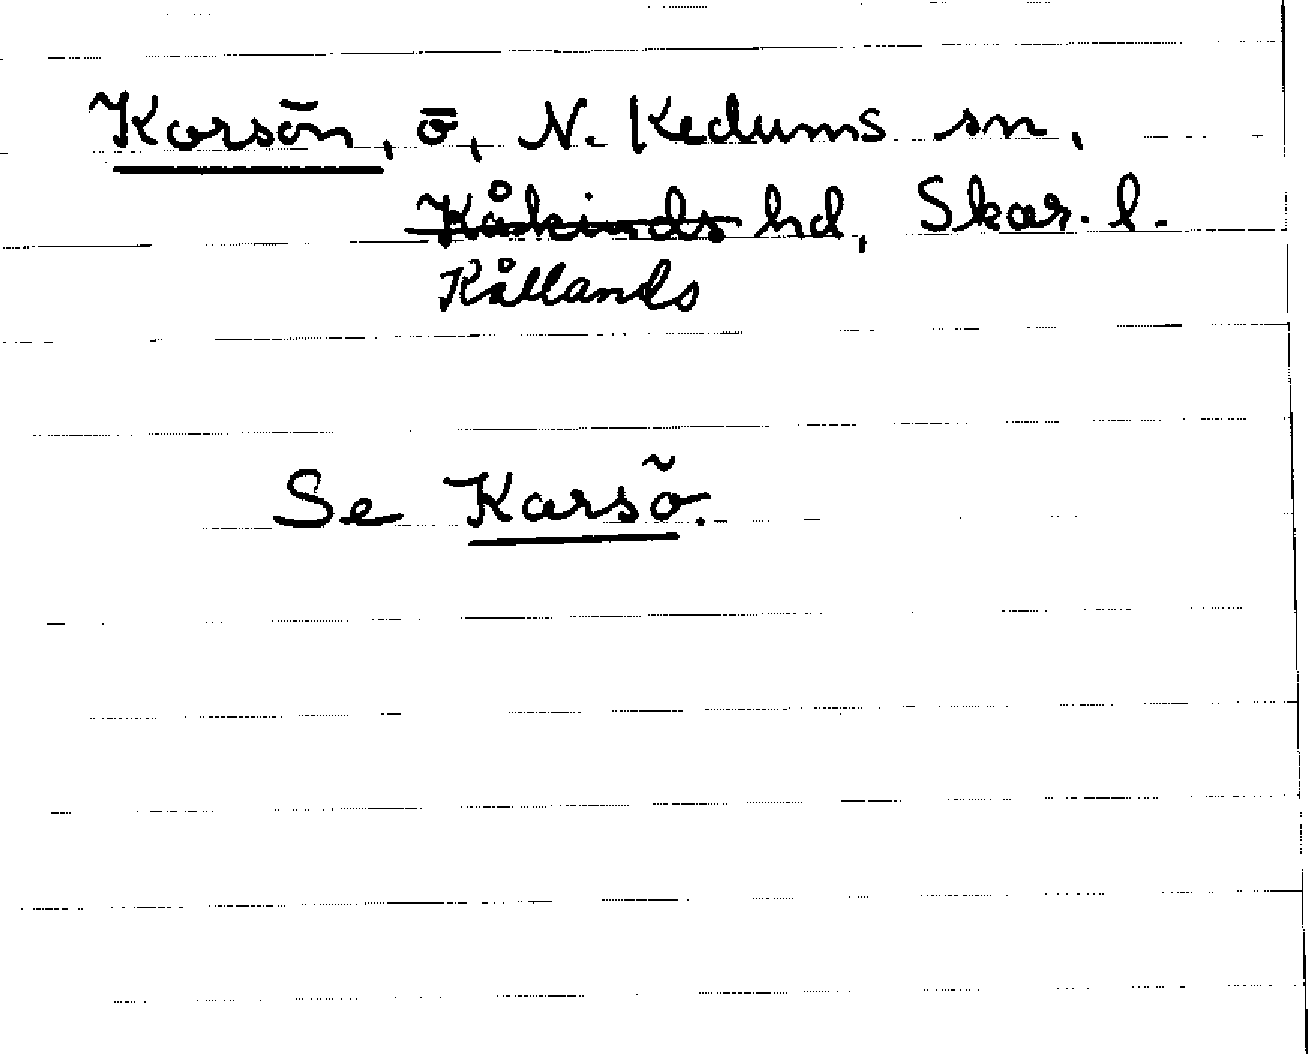 Korsön, ö, N. Kedums sn,
Kåkinds hd, Skar. l.
Kållands
Se Karsö.